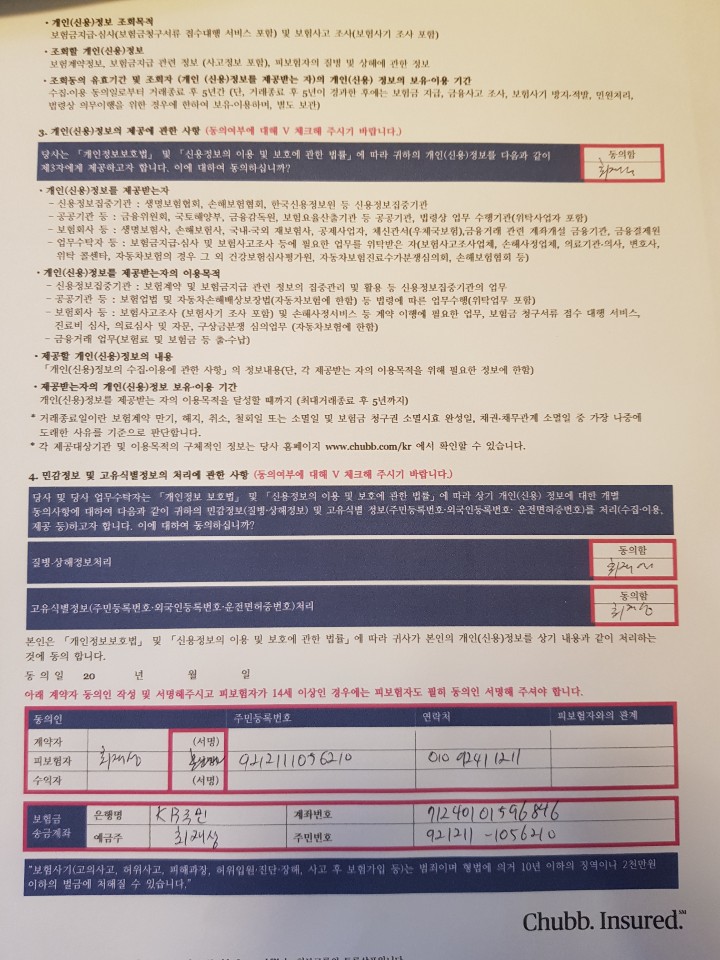 • 개인(신용)정보 조회목적
보험금지급·심사(보험금청구서류 접수대행 서비스 포함) 및 보험사고 조사(보험사기 조사 포함)
• 조회할 개인(신용)정보
보험계약정보, 보험금지급 관련 정보 (사고정보 포함), 피보험자의 질병 및 상해에 관한 정보
• 조회동의 유효기간 및 조회자 (개인 (신용)정보를 제공받는 자)의 개인 (신용) 정보의 보유·이용 기간
수집·이용 동의일로부터 거래종료 후 5년간 (단, 거래종료 후 5년이 경과한 후에는 보험금 지급, 금융사고 조사, 보험사기 방지·적발, 민원처리,
법령상 의무이행을 위한 경우에 한하여 보유·이용하며, 별도 보관)
3. 개인(신용)정보의 제공에 관한 사항 (동의여부에 대해 V 체크해 주시기 바랍니다.)
당사는 「개인정보보호법」 및 「신용정보의 이용 및 보호에 관한 법률」에 따라 귀하의 개인(신용)정보를 다음과 같이
제3자에게 제공하고자 합니다. 이에 대하여 동의하십니까?
동의함
• 개인(신용)정보를 제공받는자
– 신용정보집중기관 : 생명보험협회, 손해보험협회, 한국신용정보원 등 신용정보집중기관
– 공공기관 등 : 금융위원회, 국토해양부, 금융감독원, 보험요율산출기관 등 공공기관, 법령상 업무 수행기관(위탁사업자 포함)
– 보험회사 등 : 생명보험사, 손해보험사, 국내·국외 재보험사, 공제사업자, 체신관서(우체국보험),금융거래 관련 계좌개설 금융기관, 금융결제원
– 업무수탁자 등 : 보험금지급·심사 및 보험사고조사 등에 필요한 업무를 위탁받은 자(보험사고조사업체, 손해사정업체, 의료기관·의사, 변호사,
위탁 콜센타, 자동차보험의 경우 그 외 건강보험심사평가원, 자동차보험진료수가분쟁심의회, 손해보험협회 등)
• 개인(신용)정보를 제공받는자의 이용목적
– 신용정보집중기관 : 보험계약 및 보험금지급 관련 정보의 집중관리 및 활용 등 신용정보집중기관의 업무
– 공공기관 등 : 보험업법 및 자동차손해배상보장법(자동차보험에 한함) 등 법령에 따른 업무수행(위탁업무 포함)
– 보험회사 등 : 보험사고조사 (보험사기 조사 포함) 및 손해사정서비스 등 계약 이행에 필요한 업무, 보험금 청구서류 접수 대행 서비스,
진료비 심사, 의료심사 및 자문, 구상금분쟁 심의업무 (자동차보험에 한함)
– 금융거래 업무(보험료 및 보험금 등 출·수납)
• 제공할 개인(신용)정보의 내용
「개인(신용)정보의 수집·이용에 관한 사항」의 정보내용(단, 각 제공받는 자의 이용목적을 위해 필요한 정보에 한함)
• 제공받는자의 개인(신용)정보 보유·이용 기간
개인(신용)정보를 제공받는 자의 이용목적을 달성할 때까지 (최대거래종료 후 5년까지)
* 거래종료일이란 보험계약 만기, 해지, 취소, 철회일 또는 소멸일 및 보험금 청구권 소멸시효 완성일, 채권·채무관계 소멸일 중 가장 나중에
도래한 사유를 기준으로 판단합니다.
* 각 제공대상기관 및 이용목적의 구체적인 정보는 당사 홈페이지 www.chubb.com/kr 에서 확인할 수 있습니다.
4. 민감정보 및 고유식별정보의 처리에 관한 사항 (동의여부에 대해 V 체크해 주시기 바랍니다.)
당사 및 당사 업무수탁자는 「개인정보 보호법」 및 「신용정보의 이용 및 보호에 관한 법률」에 따라 상기 개인(신용) 정보에 대한 개별
동의사항에 대하여 다음과 같이 귀하의 민감정보(질병·상해정보) 및 고유식별 정보(주민등록번호·외국인등록번호· 운전면허증번호)를 처리(수집·이용,
제공 등)하고자 합니다. 이에 대하여 동의하십니까?
질병·상해정보처리
동의함
고유식별정보(주민등록번호·외국인등록번호·운전면허증번호)처리
동의함
본인은 「개인정보보호법」 및 「신용정보의 이용 및 보호에 관한 법률」에 따라 귀사가 본인의 개인(신용)정보를 상기 내용과 같이 처리하는
것에 동의 합니다.
동 의 일 20 년 월 일
아래 계약자 동의인 작성 및 서명해주시고 피보험자가 14세 이상인 경우에는 피보험자도 필히 동의인 서명해 주셔야 합니다.
동의인 주민등록번호 연락처 피보험자와의 관계
계약자 (서명)
피보험자 최재성 9212111056210 010 92411211
수익자 (서명)
보험금 송금계좌 은행명 KB국민 계좌번호 71240101596846
예금주 최재성 주민번호 921211 -1056210
“보험사기(고의사고, 허위사고, 피해과장, 허위입원·진단·장해, 사고 후 보험가입 등)는 범죄이며 형법에 의거 10년 이하의 징역이나 2천만원
이하의 벌금에 처해질 수 있습니다.”
Chubb. Insured.℠